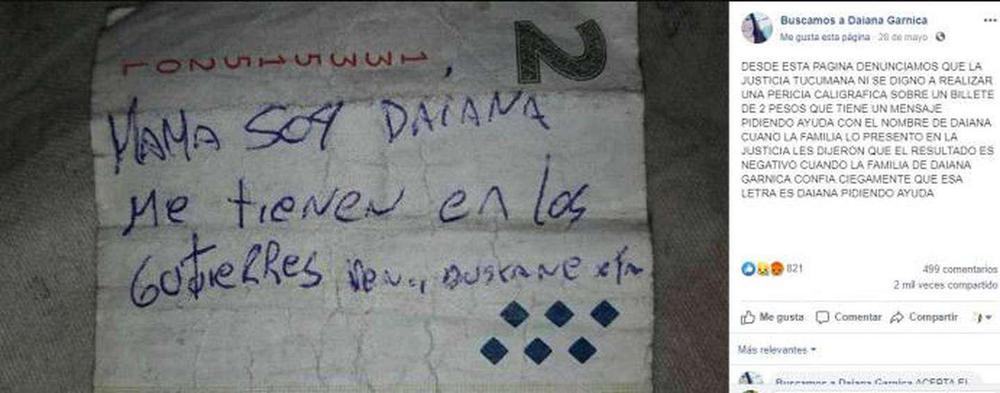 2
MAMA SOY DAIANA
Me tienen en los
Gutierres Ven., BUSKAME xfa
Buscamos a Daiana Garnica
Me gusta esta página · 28 de mayo ·
DESDE ESTA PAGINA DENUNCIAMOS QUE LA
JUSTICIA TUCUMANA NI SE DIGNO A REALIZAR
UNA PERICIA CALIGRAFICA SOBRE UN BILLETE
DE 2 PESOS QUE TIENE UN MENSAJE
PIDIENDO AYUDA CON EL NOMBRE DE DAIANA
CUANO LA FAMILIA LO PRESENTO EN LA
JUSTICIA LES DIJERON QUE EL RESULTADO ES
NEGATIVO CUANDO LA FAMILIA DE DAIANA
GARNICA CONFIA CIEGAMENTE QUE ESA
LETRA ES DAIANA PIDIENDO AYUDA
821
499 comentarios
2 mil veces compartido
Me gusta Comentar Compartir
Más relevantes
Buscamos a Daiana Garnica ACEPTA EL